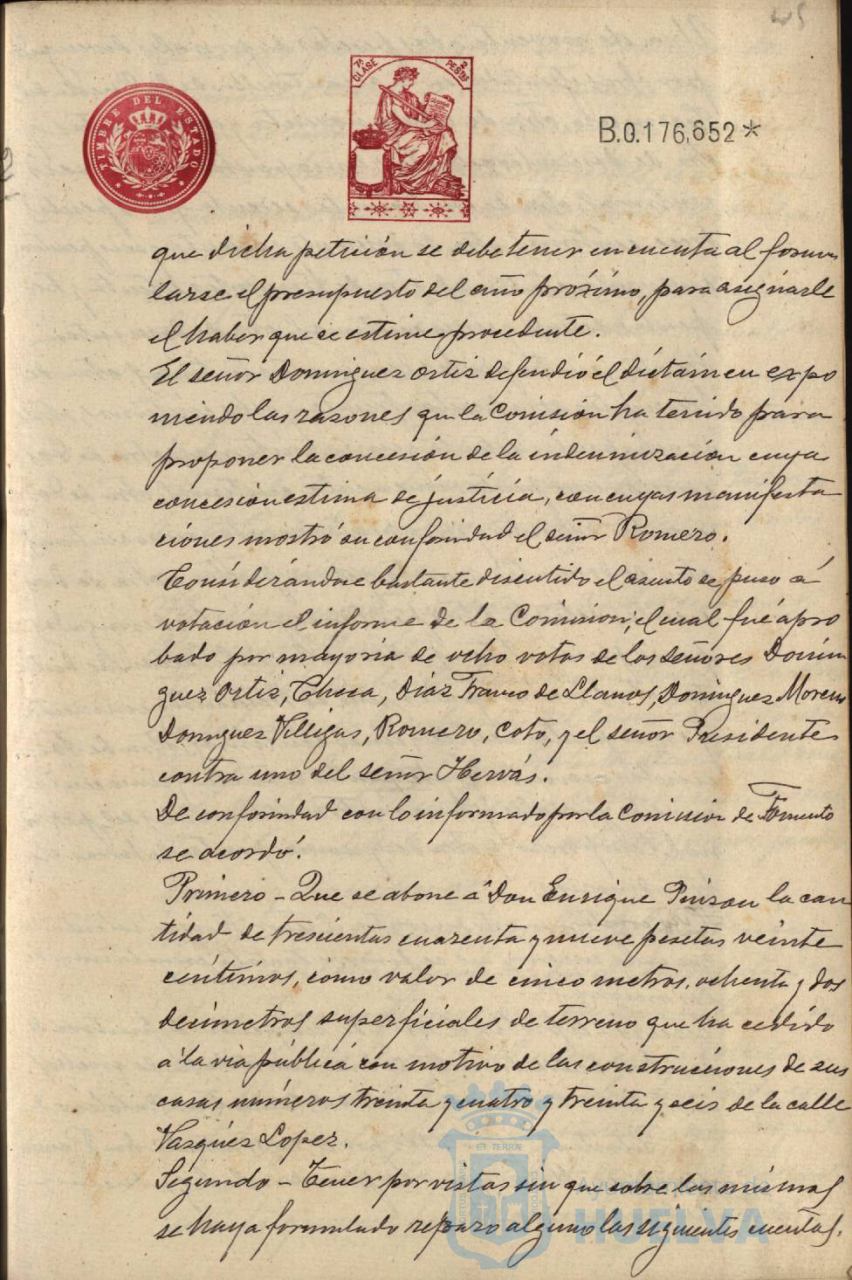 45
TIMBRE DEL ESTADO
7ª CLASE 2 PESTAS
B.0.176,652*
que dicha petición se debe tener en cuenta al formu
larse el presupuesto del año próximo, para asignarle
el haber que se estime procedente.
El señor Dominguez Ortiz defendió el dictámen expo
niendo las razones que la Comisión ha tenido para
proponer la concesión de la indemnización cuya
concesión estima de justicia, con cuyas manifesta
ciones mostró su conformidad el señor Romero.
Considerándose bastante discutido el asunto se puso á
votación el informe de la Comision; el cual fué apro
bado por mayoría de ocho votos de los señores Domin
guez Ortiz, Checa, Díaz Franco de Llanos, Dominguez Moreno
Dominguez Villegas, Romero, Coto, y el señor Presidente
contra uno del señor Hervás.
De conformidad con lo informado por la Comision de Fomento
se acordó.
Primero - Que se abone á Don Enrique Pinzon la can
tidad de trescientas cuarenta y nueve pesetas veinte
centimos, como valor de cinco metros, ochenta y dos
decimetros superficiales de terreno que ha cedido
á la via pública con motivo de las construcciones de sus
casas números treinta y cuatro y treinta y seis de la calle
Vazquez Lopez.
Segundo - Tener por vistas sin que sobre las mismas
se haya formulado reparo alguno las siguientes cuentas.
ET TERRÆ
HUELVA